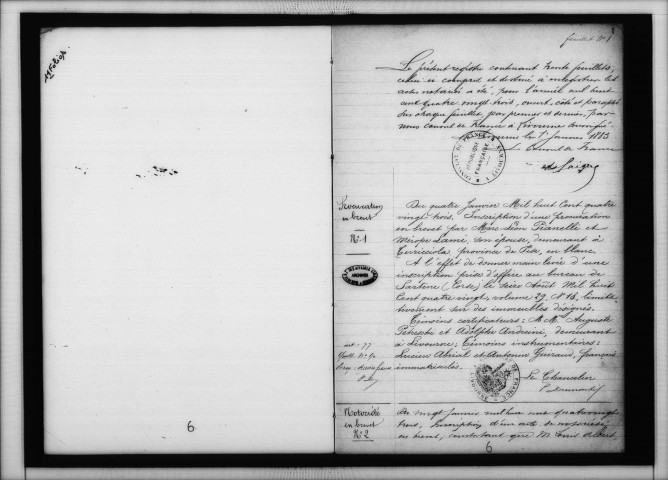 feuillet Nº 1
Le présent registre contenant trente feuillets,
celui-ci compris et destiné à enregistrer les
actes notariés a été, pour l'année mil huit
cent quatre vingt trois, ouvert, coté et paraphé
sur chaque feuillet, par premier et dernier, par
nous Consul de France à Livourne
le 1er Janvier 1883
Le Consul de France
CONSULAT DE FRANCE A LIVOURNE
RÉPUBLIQUE FRANÇAISE
Procuration
en brevet
Nº 1
Du quatre Janvier Mil huit Cent quatre
vingt trois. Inscription d'une procuration
en brevet par Marc Léon Pianelli et
Mérope Lami, son épouse, demeurant à
province de Pise, en blanc.
A l'effet de donner main levée d'une
inscription prise d'office au bureau de
Sartène (Corse) le seize Août Mil huit
Cent quatre vingt, volume 29, Nº 18, limita-
tivement sur des immeubles désignés.
Témoins certificateurs: M.M. Auguste
et Adolphe Andreini, demeurant
à Livourne; Témoins instrumentaires:
Lucien Abrial et Antoine Guiraud, français
immatriculés.
art. 77
Le Chancelier
Notoriété
en brevet
Nº 2
Du vingt Janvier mil huit cent quatre vingt
trois, Inscription d'un acte de notoriété
en brevet, constatant que M.
6
6